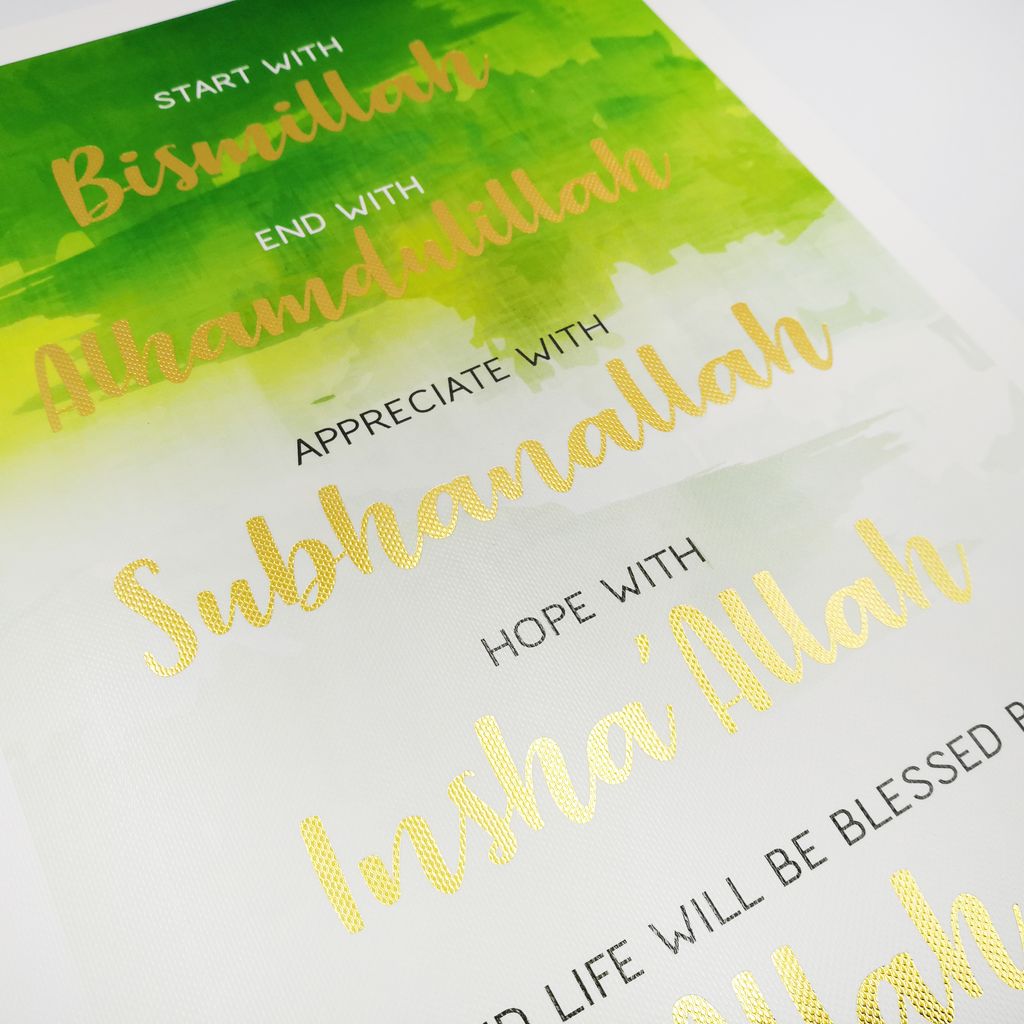 START WITH
Bismillah
END WITH
Alhamdulillah
APPRECIATE WITH
Subhanallah
HOPE WITH
Insha'Allah
LIFE WILL BE BLESSED